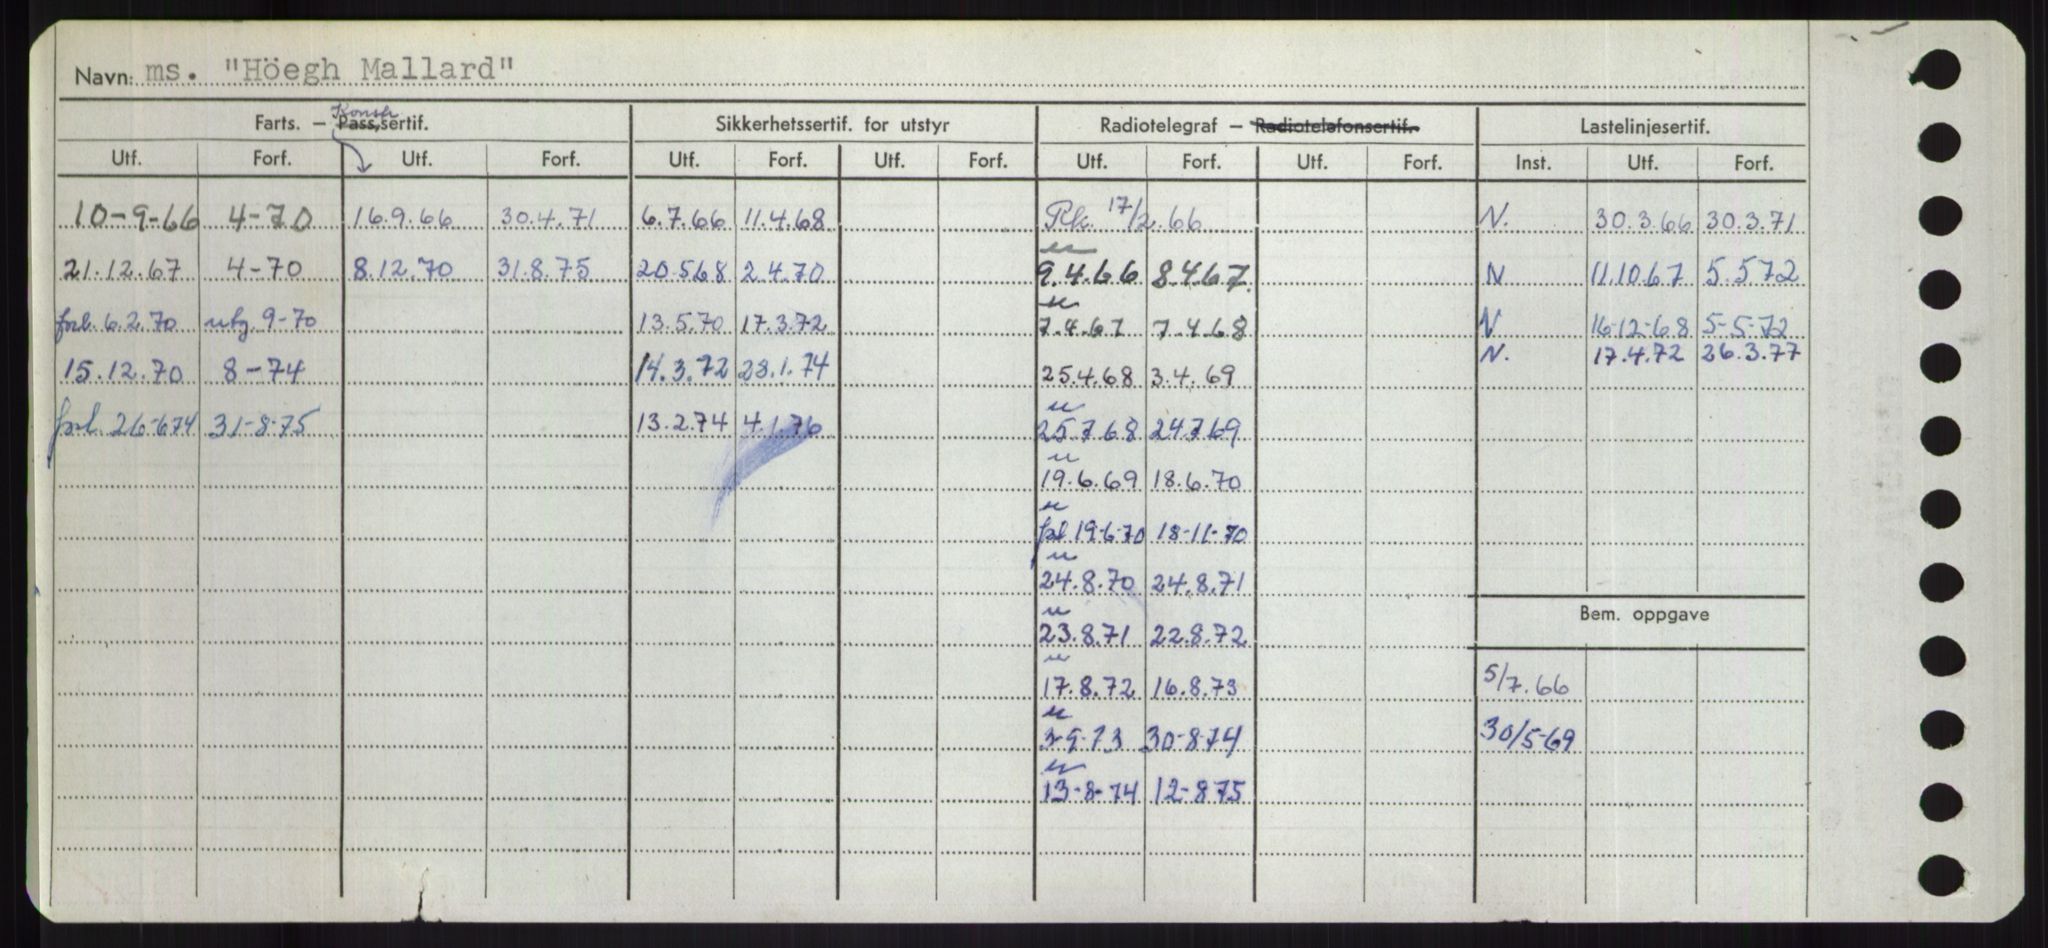 Navn: ms. "Höegh Mallard"
Konstr
Farts. — Pass.sertif. Sikkerhetssertif. for utstyr Radiotelegraf — Radiotelefonsertif. Lastelinjesertif.
Utf. Forf. Utf. Forf. Utf. Forf. Utf. Forf. Utf. Forf. Utf. Forf. Inst. Utf. Forf.
10-9-66 4-70 16.9.66 30.4.71 6.7.66 11.4.68 Rk. 17/2.66 N. 30.3.66 30.3.71
21.12.67 4-70 8.12.70 31.8.75 20.5.68 2.4.70 9.4.66 8.4.67. N 11.10.67 5.5.72
forl. 6.2.70 utg. 9-70 13.5.70 17.3.72 7.4.67 7.4.68 N 16-12-68 5-5-72
15.12.70 8-74 14.3.72 23.1.74 25.4.68 3.4.69 N. 17.4.72 26.3.77
forl. 26-6-74 31-8-75 13.2.74 4.1.76 25.7.68 24.7.69
19.6.69 18.6.70
forl 19-6-70 18-11-70
24.8.70 24.8.71
Bem. oppgave
23.8.71 22.8.72
17.8.72 16.8.73 5/7.66
3-9-73 30-8-74 30/5-69
13-8-74 12-8-75